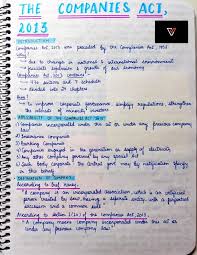 THE COMPANIES ACT,
2013
INTRODUCTION
Companies Act, 2013 was preceded by the Companies Act, 1956
Why?
→ due to changes in national & international environment
→ facilitate expansion & growth of our economy
Companies Act, 2013 contains
→ 470 sections and 7 schedules
→ divided into 29 chapters
to improve corporate governance simplify regulations, strengthen
the interests of investors
APPLICABILITY OF THE COMPANIES ACT 2013
1) Companies incorporated under this act or under any previous company
law
2) Insurance companies
3) Banking Companies
4) Companies engaged in the generation or supply of electricity
5) Any other company governed by any special Act
6) Such Body Corporate the Central govt may by notification specify
in this behalf
According to
"A company is an incorporated association which is an artificial
person created by law, having a separate entity, with a perpetual
succession and a common seal."
According to section 2(20) of the Companies Act, 2013,
"A company means company incorporated under this act or
under any previous company law"